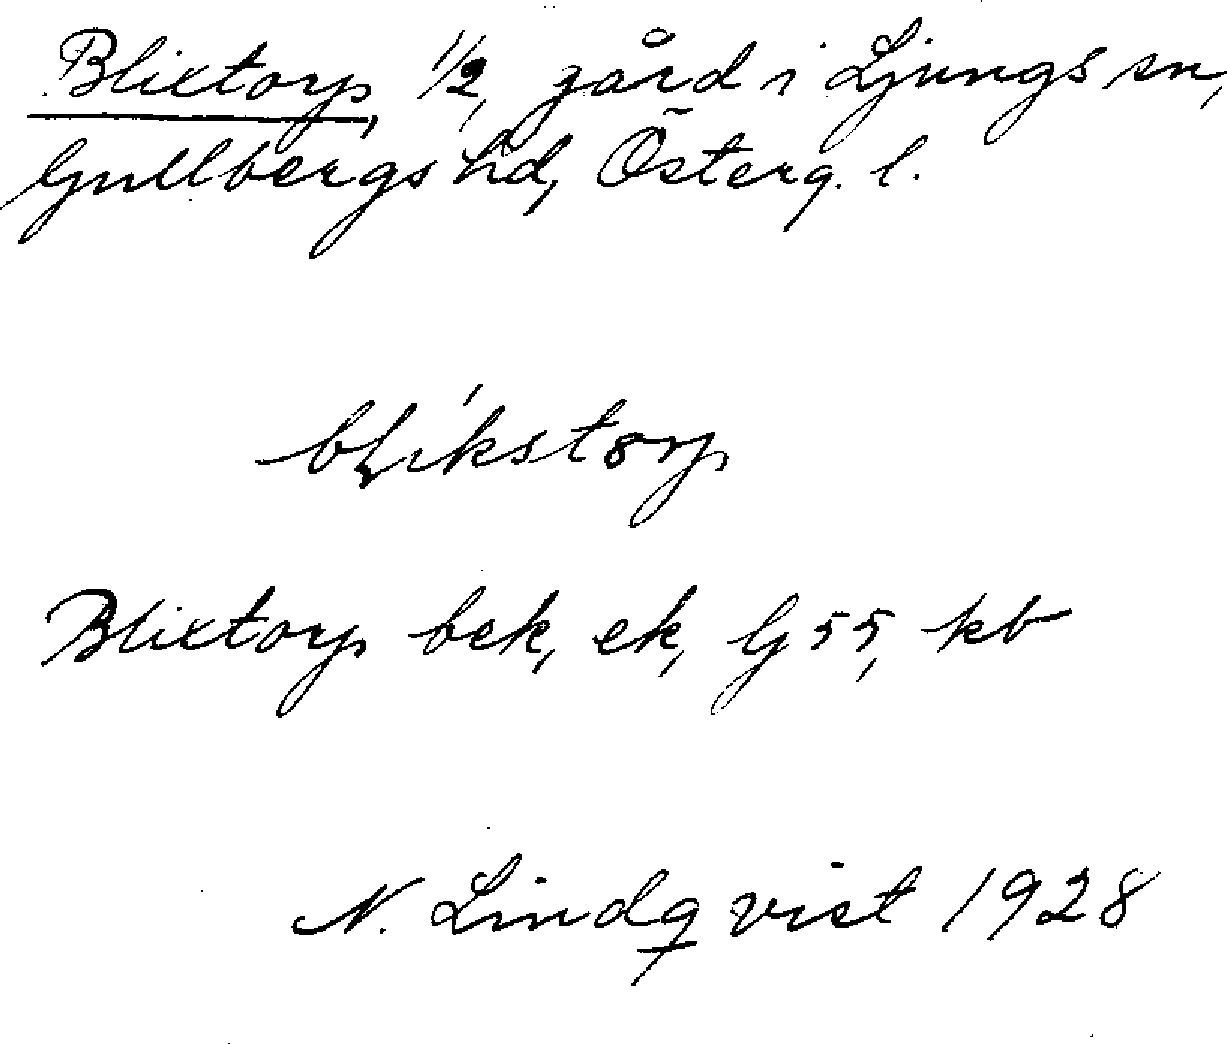 Blixtorp, 1/2, gård i Ljungs sn,
Gullbergs hd, Österg. l.
blíkstorp
Blixtorp bek, ek, G 55, kb
N. Lindqvist 1928